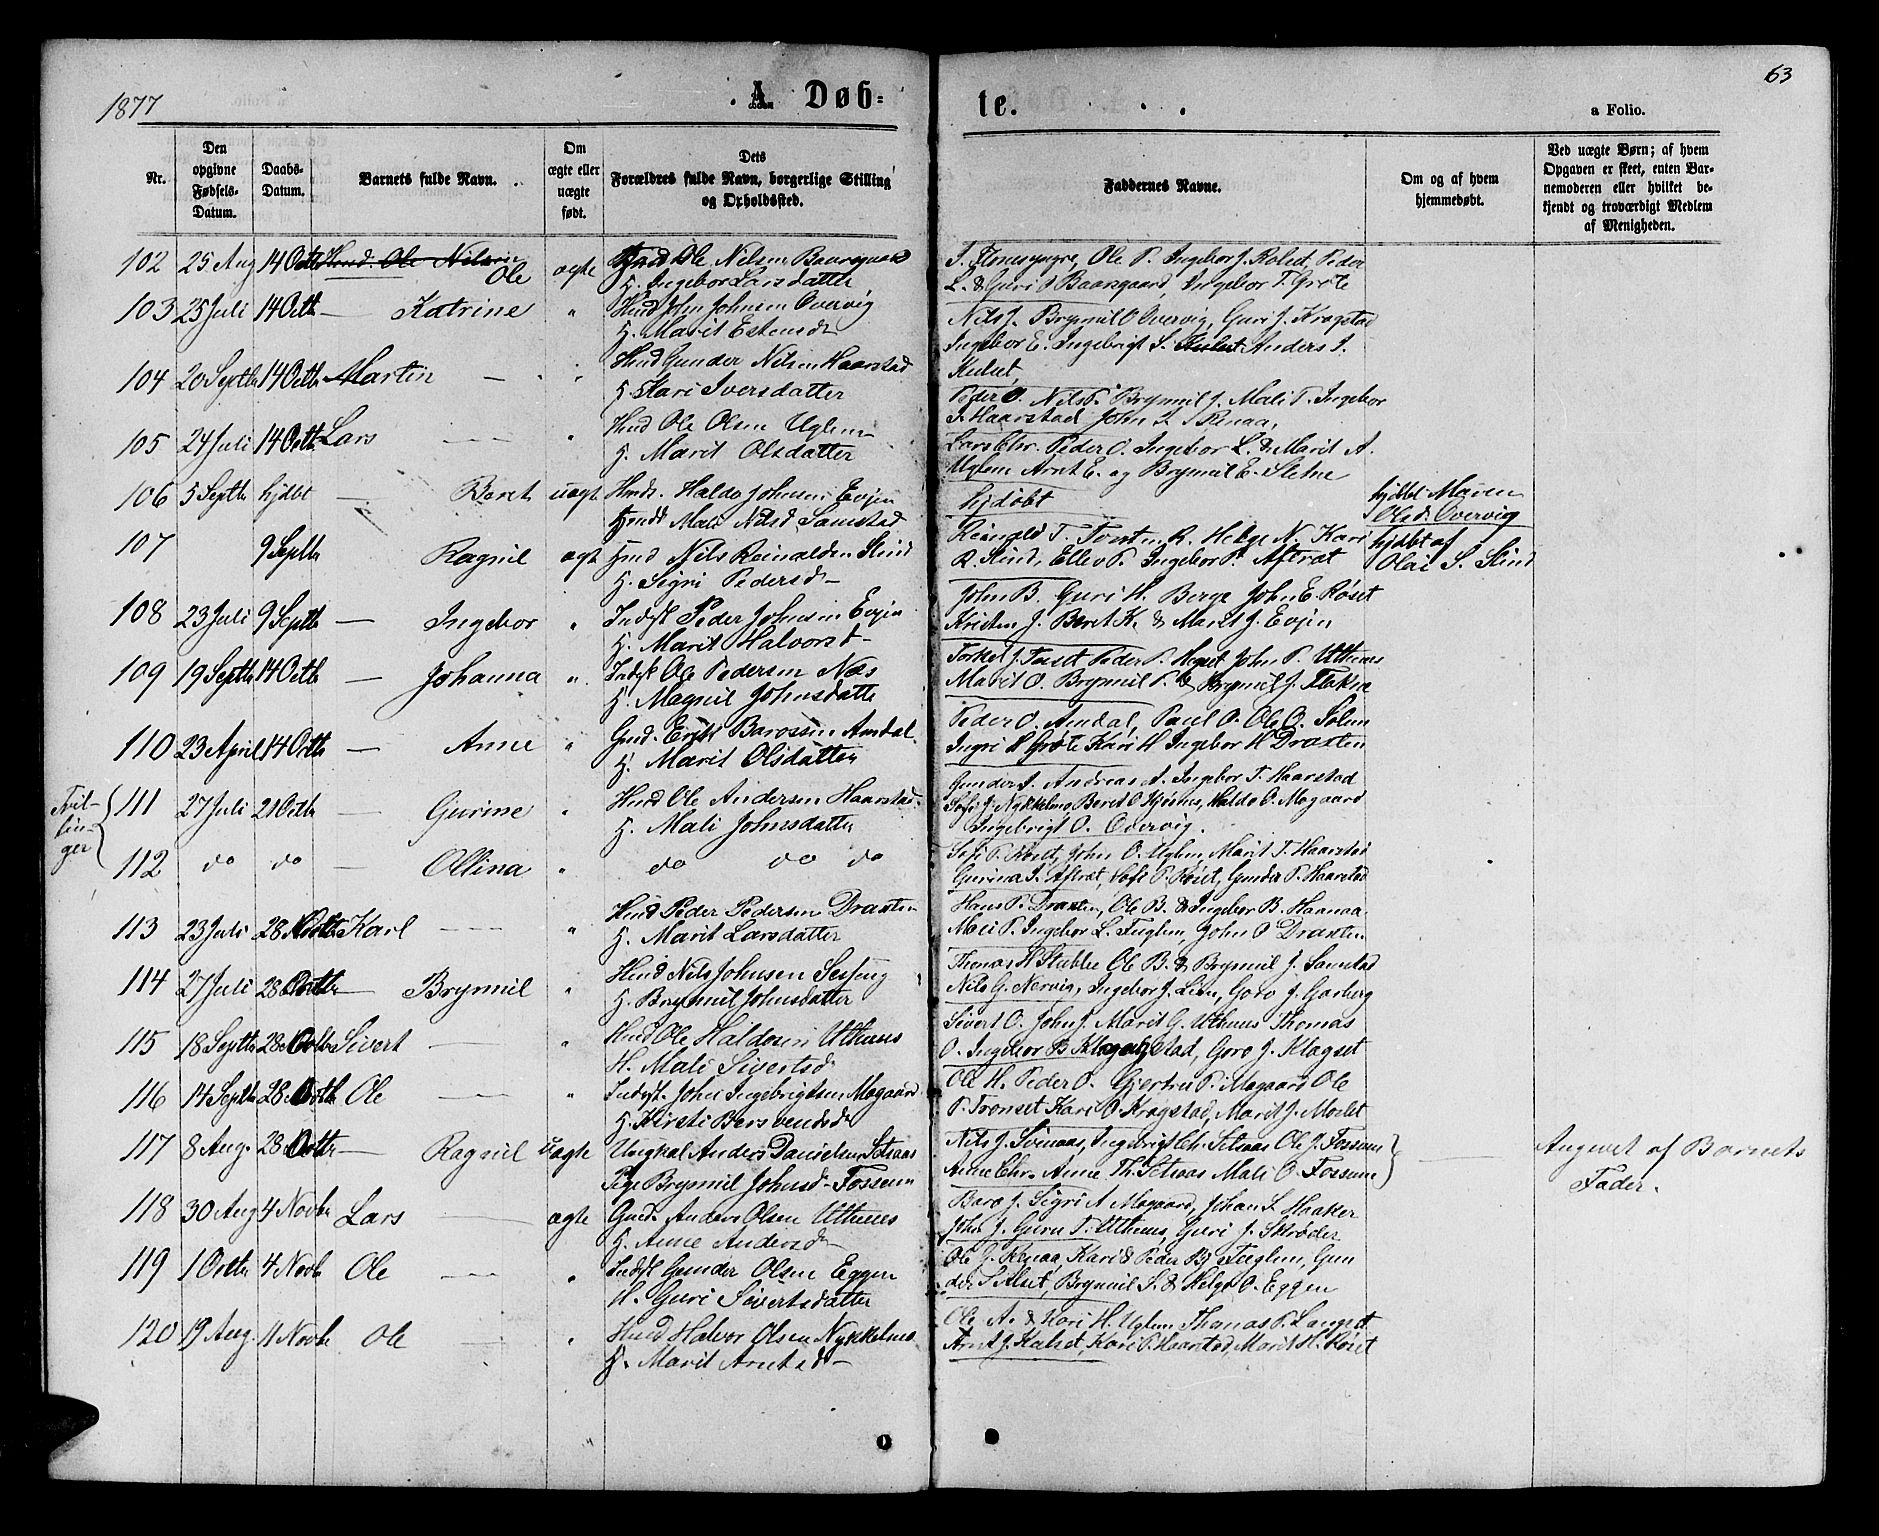 1877
A. Døb=
te.
63
a Folio.
Nr.
Den opgivne Fødsels-Datum.
Daabs-Datum.
Barnets fulde Navn.
Om ægte eller uægte født.
Dets Forældres fulde Navn, borgerlige Stilling og Opholdssted.
Faddernes Navne.
Om og af hvem hjemmedøbt.
Ved uægte Børn; af hvem Opgaven er skeet, enten Barnemoderen eller hvilket bekjendt og troværdigt Medlem af Menigheden.
102 25 Aug 14 Octb Ole ægte Ole Nilsen Baarsgaard
H. Ingebor Larsdatter
Ole P. Ingebor J. Rolset, Peder
L. & Guri O Baarsgaard, Ingebor T. Grøte
103 25 Juli 14 Octb — Katrine " Husd John Johnsen Overvig
H. Marit Estensd
Nils J. Brynnil O Overvig, Guri J. Krogstad
Ingebor E. Ingebrigt S. Anders J.
Kulset
104 20 Septb 14 Octb Martin — " Husd Gunder Nilsen Haarstad
H. Kari Iversdatter
Peder O. Nils P. Brynnil J. Mali T. Ingebor
J. Haarstad John L. Renaa,
105 24 Juli 14 Octb Lars — " Husd Ole Olsen Uglem
H. Marit Olsdatter
Lars Chr. Peder O. Ingebor L. & Marit A.
Uglem Arnt E. og Brynnil E. Sletne
106 5 Septb hjdbt — Beret uægt Husd. Haldo Johnsen Evjen
Mali Nilsd Samstad
hjdøbt
hjdbt Maren
Olsd. Overvig
107 9 Septb Ragnil ægt Husd Nils Reinaldsen Stind
H. Sigri Pedersd
Reinald T. Torsten R. Helge N. Kari
R. Stind, Ellev P. Ingebor P. Aftret
hjdbt af
Olai S. Stind
108 23 Juli 9 Septb — Ingebor " Indst Peder Johnsen Evjen
H. Marit Halvorsd
John B. Guri H. Berge John E. Røset
Kristen J. Beret K. & Marit J. Evjen
109 19 Septb 14 Octb — Johanna " Indst Ole Pedersen Næs
H. Magnil Johnsdatte
Torkel J. Tuset Peder P. Hegset John P. Uthuus
Marit O. Brynnil P. & Brynnil J. Flaknæ
110 23 April 14 Octb — Anne " Gmd. Erik Barossen Amdal
H. Marit Olsdatter
Peder O. Amdal, Paul O. Ole O. Solem
Ingri H Grøte Kari H Ingebor H Draxten
Tvil-
lin-
ger
111 27 Juli 21 Octb — Gurine " Husd Ole Andersen Haarstad
H. Mali Johnsdatter
Gunder A. Andreas A. Ingebor T. Haarstad
Sofi J. Nykkelmo, Beret O Hjørnes, Haldo O. Mogaard
Ingebrigt O. Overvig.
112 do do — Ollina " do do do
Sofi P. Røset, John O. Uglem, Marit T. Haarstad
Gurina S. Aftret, Sofi P. Røset, Gunder P. Haarstad
113 23 Juli 28 Octb Karl — " Husd Peder Pedersen Draxten
H. Marit Larsdatter
Hans P. Draxten, Ole B. & Ingebor B. Hanaa
Mali P. Ingebor L. Fuglem, John O Draxten
114 27 Juli 28 Octb — Brynnil " Husd Nils Johnsen Sesseng
H. Brynnil Johnsdatter
Thomas H Stubbe Ole B. & Brynnil J. Samstad
Nils G. Nervig, Ingebor J. Lien, Goro J. Garberg
115 18 Septb 28 Octb Sivert — " Husd Ole Haldosen Uthuus
H. Mali Sivertsd
Sivert O. John J. Marit G. Uthuus Thomas
O. Ingebor B Krogstad, Goro J. Klagset
116 14 Septb 28 Octb Ole — " Indst. John Ingebrigtsen Mogaard
H. Kirsti Bersvendsd
Ole H. Peder O. Gjertru P. Mogaard Ole
P. Tronset Kari O. Krogstad, Marit J. Moslet
117 8 Aug. 28 Octb — Ragnil uægte Ungkal Anders Danielsen Setsaas
Pige Brynnil Johnsd. Fossum
Nils J. Svenaas, Ingebrigt Chr. Setsaas Ole J. Fossum
Anne Chr. Anne Th. Setsaas Mali O. Fossum
Angivet af Barnets
Fader.
118 30 Aug 4 Novbr Lars — ægte Gmd. Anders Olsen Uthuus
H. Anne Andersd
Baro J. Sigri A Mogaard, Johan L Haaker
John J. Guru T. Uthuus, Guri J. Skrøder
119 1 Octbr 4 Novb Ole — " Indst Gunder Olsen Eggen
H. Guri Sivertsdatter
Ole J. Renaa, Kari & Peder Bj. Fuglem, Gun
der S Alset, Brynnil S. & Helge O. Eggen
120 19 Aug. 11 Novb Ole — " Husd Halvor Olsen Nykkelmo
H. Marit Arntsd —
Ole A. & Kari H. Uglem Thomas P. Langset
Arnt J. Kulset, Kari P. Haarstad, Marit H. Røset